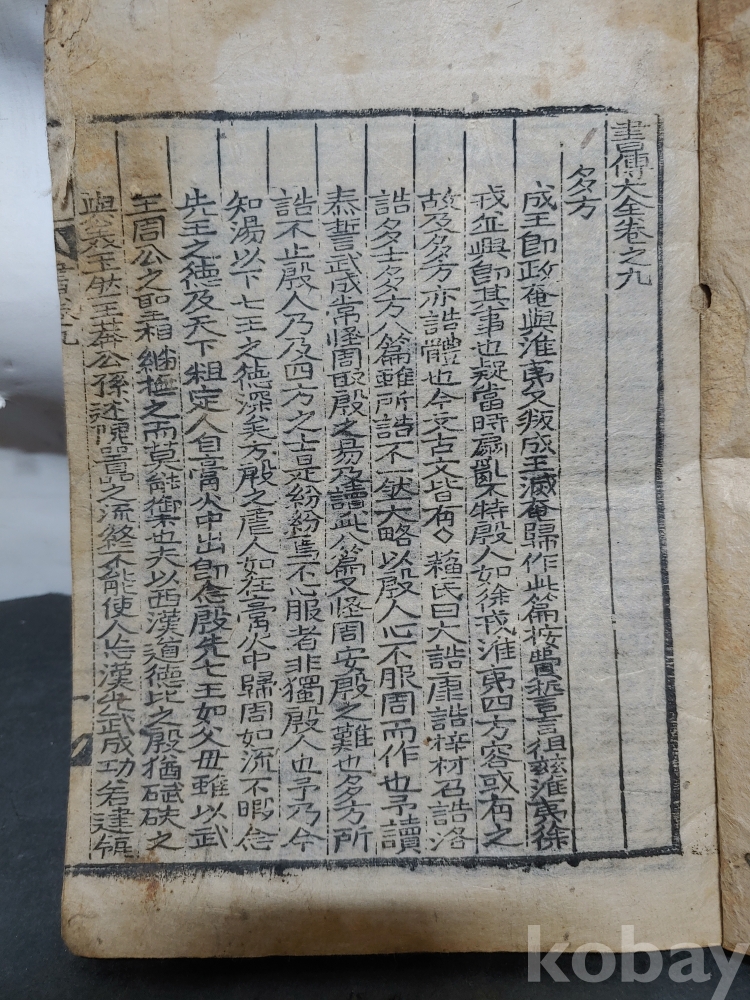 書傳大全卷之九
多方
成王卽政奄與淮夷又叛成王滅奄歸作此篇按費誓言徂茲淮夷徐
戎並興卽其事也疑當時扇亂不特殷人如徐戎淮夷四方容或有之
故及多方亦誥體也今文古文皆有◇蘇氏曰大誥康誥梓材召誥洛
誥多士多方八篇雖所誥不一然大略以殷人心不服周而作也予讀
泰誓武成常怪周取殷之易乃讀此八篇又怪周安殷之難也多方所
誥不止殷人乃及四方之士是紛紛焉不心服者非獨殷人也予乃今
知湯以下七王之德深矣方殷之虐人如在膏火中歸周如流不暇念
先王之德及天下粗定人自膏火中出卽念殷先七王如父母雖以武
王周公之聖相繼撫之而莫能禦也夫以西漢道德比之殷猶碔砆之
與美玉然王莽公孫述隗囂之流終不能使人忘漢光武成功若建瓴
kobay